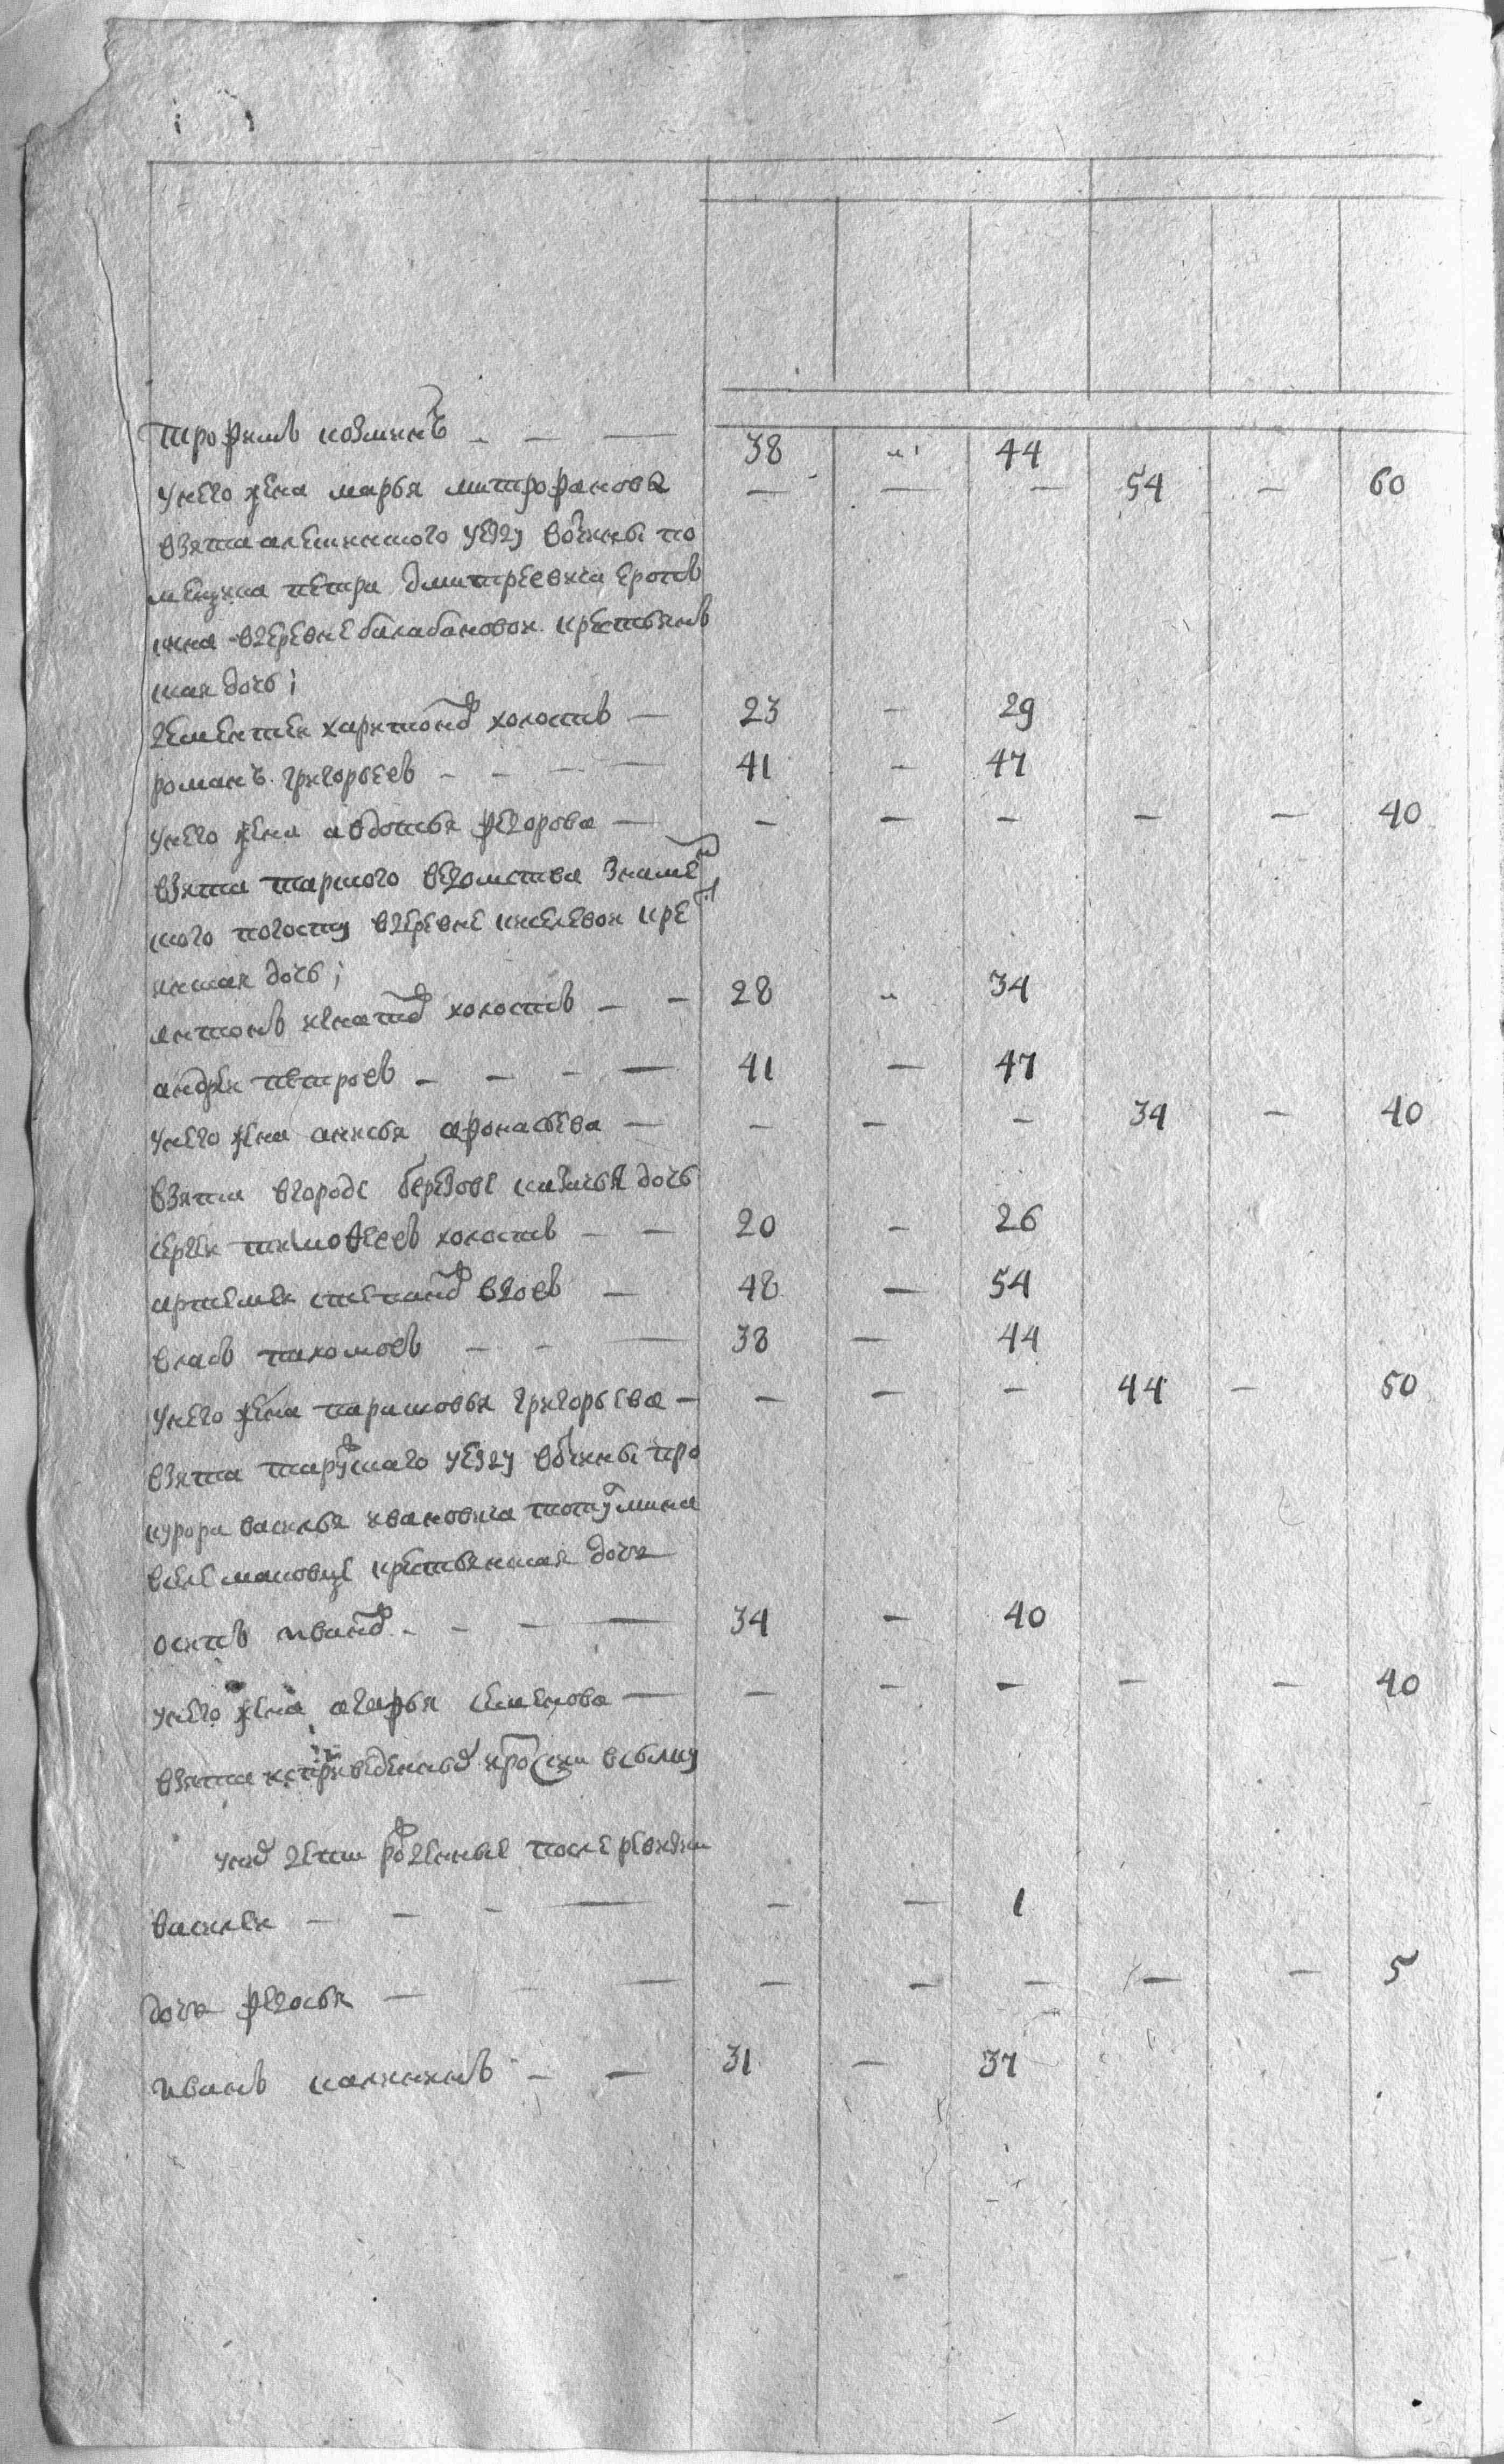 трофимъ козминъ - - — 38 " 44
у него жена марья митрофанова — — — 54 — 60
взята алешинского уезду вочины по
мещика петра дмитреевича еропъ
кина в деревне балабановои крестьянъ
ская дочь;
дементеи харитоновъ холостъ — 23 — 29
романъ григорьевъ - - — — 41 — 47
у него жена авдотья федорова — — — — — — 40
взята тарского ведомства знамен
ского погосту в деревне киселевои крест
янская дочь;
антонъ игнатовъ холостъ — — 28 " 34
андреи петровъ — - - — 41 — 47
у него жена анисья афонасьева — — — — 34 — 40
взята в городе березове казачья дочь
сергеи тимофеевъ холостъ — — 20 — 26
артемеи степановъ вдовъ — 48 — 54
власъ пахомовъ — - — 38 — 44
у него жена парасковья григорьева — — — — 44 — 50
взята тарускаго уезду вочины про
курора василья ивановича топтулмина
в селе маковце крестьянская дочь
осипъ ивановъ - - - — 34 — 40
у него жена агафья семенова — — — — — — 40
взята из приведенныхъ из росии в сылку
у них дети рожденные после ревизии
василеи — - - — — — 1
дочь федосья — - — — — — — — 5
иванъ калининъ - — 31 — 37